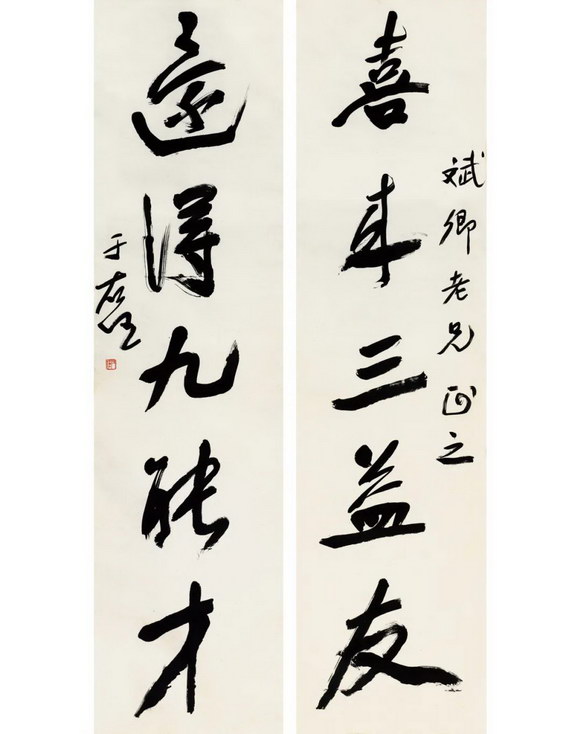 喜來三益友
斌卿老兄正之
還得九能才
于右任